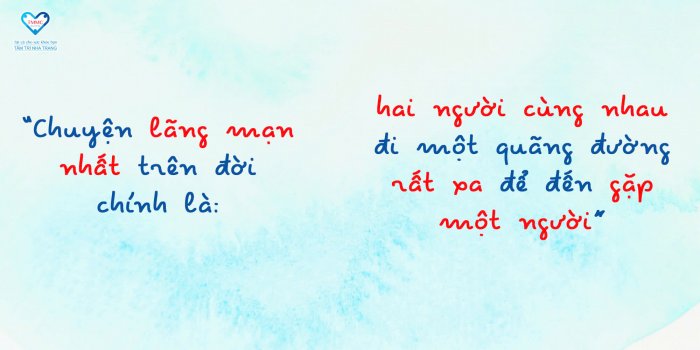 TMMC
TÂM TRÍ NHA TRANG
"Chuyện lãng mạn
nhất trên đời
chính là:
hai người cùng nhau
đi một quãng đường
rất xa để đến gặp
một người"